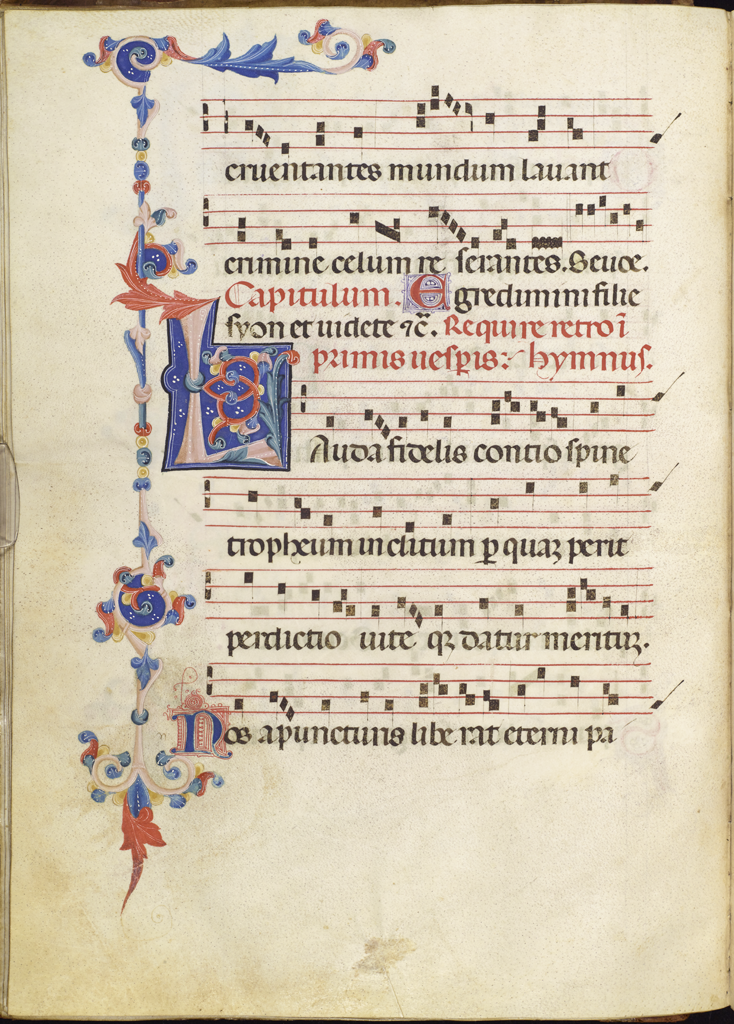 cruentantes mundum lauant
crimine celum re serantes. Seuoe.
Capitulum. Egredimini filie
syon et uidete ⁊c̄. Require retro ī
primis uesꝑis: hymnus.
LAuda fidelis contio spine
tropheum inclitum ꝑ quaꝫ perit
perdictio uite qꝫ datur meritūꝫ.
Nos a puncturis libe rat eterni pa